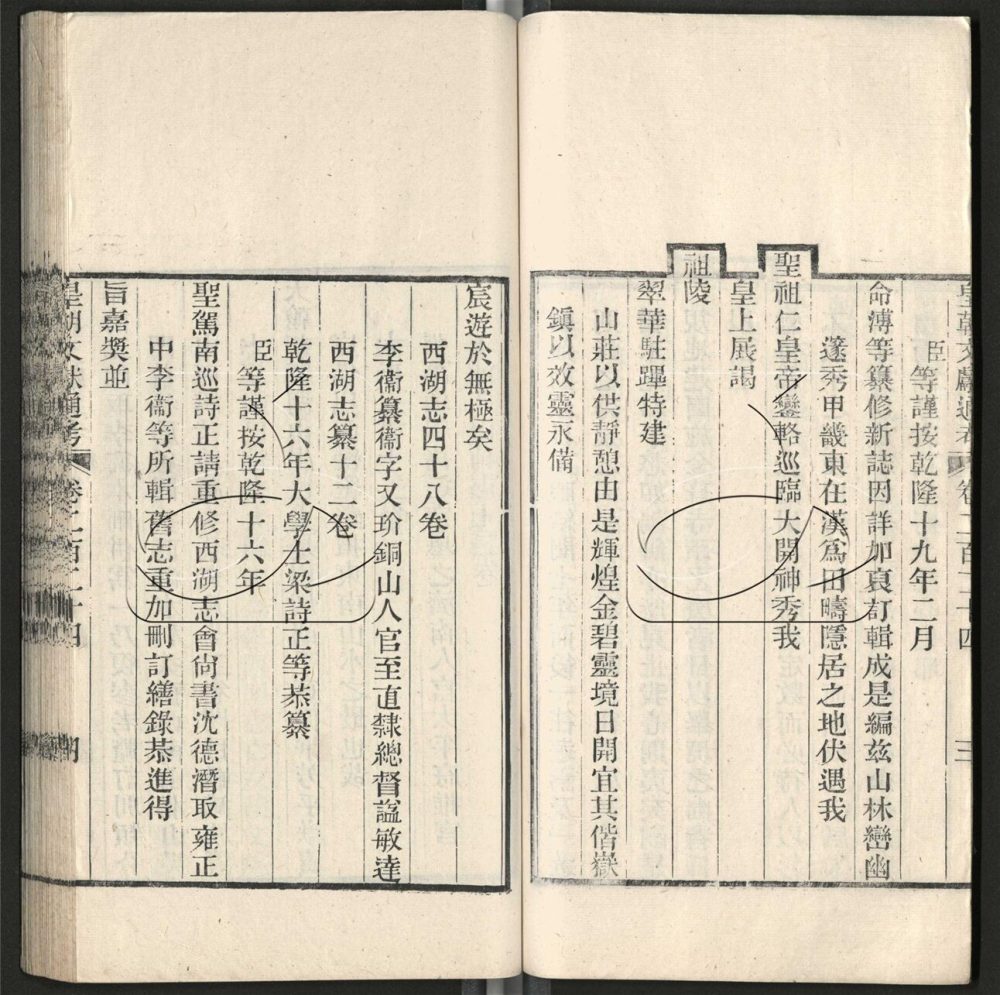 皇朝文獻通考 卷二百二十四 三
臣等謹按乾隆十九年二月
命溥等纂修新誌因詳加裒訂輯成是編茲山林巒幽
邃秀甲畿東在漢爲田疇隱居之地伏遇我
聖祖仁皇帝鑾輅巡臨大開神秀我
皇上展謁
祖陵
翠華駐蹕特建
山莊以供靜憩由是輝煌金碧靈境日開宜其偕嶽
鎮以效靈永備
宸遊於無極矣
西湖志四十八卷
李衞纂衞字又玠銅山人官至直隸總督諡敏達
西湖志纂十二卷
乾隆十六年大學士梁詩正等恭纂
臣等謹按乾隆十六年
聖駕南巡詩正請重修西湖志會尙書沈德潛取雍正
中李衞等所輯舊志重加刪訂繕錄恭進得
旨嘉奬並
皇朝文獻通考 卷二百二十四